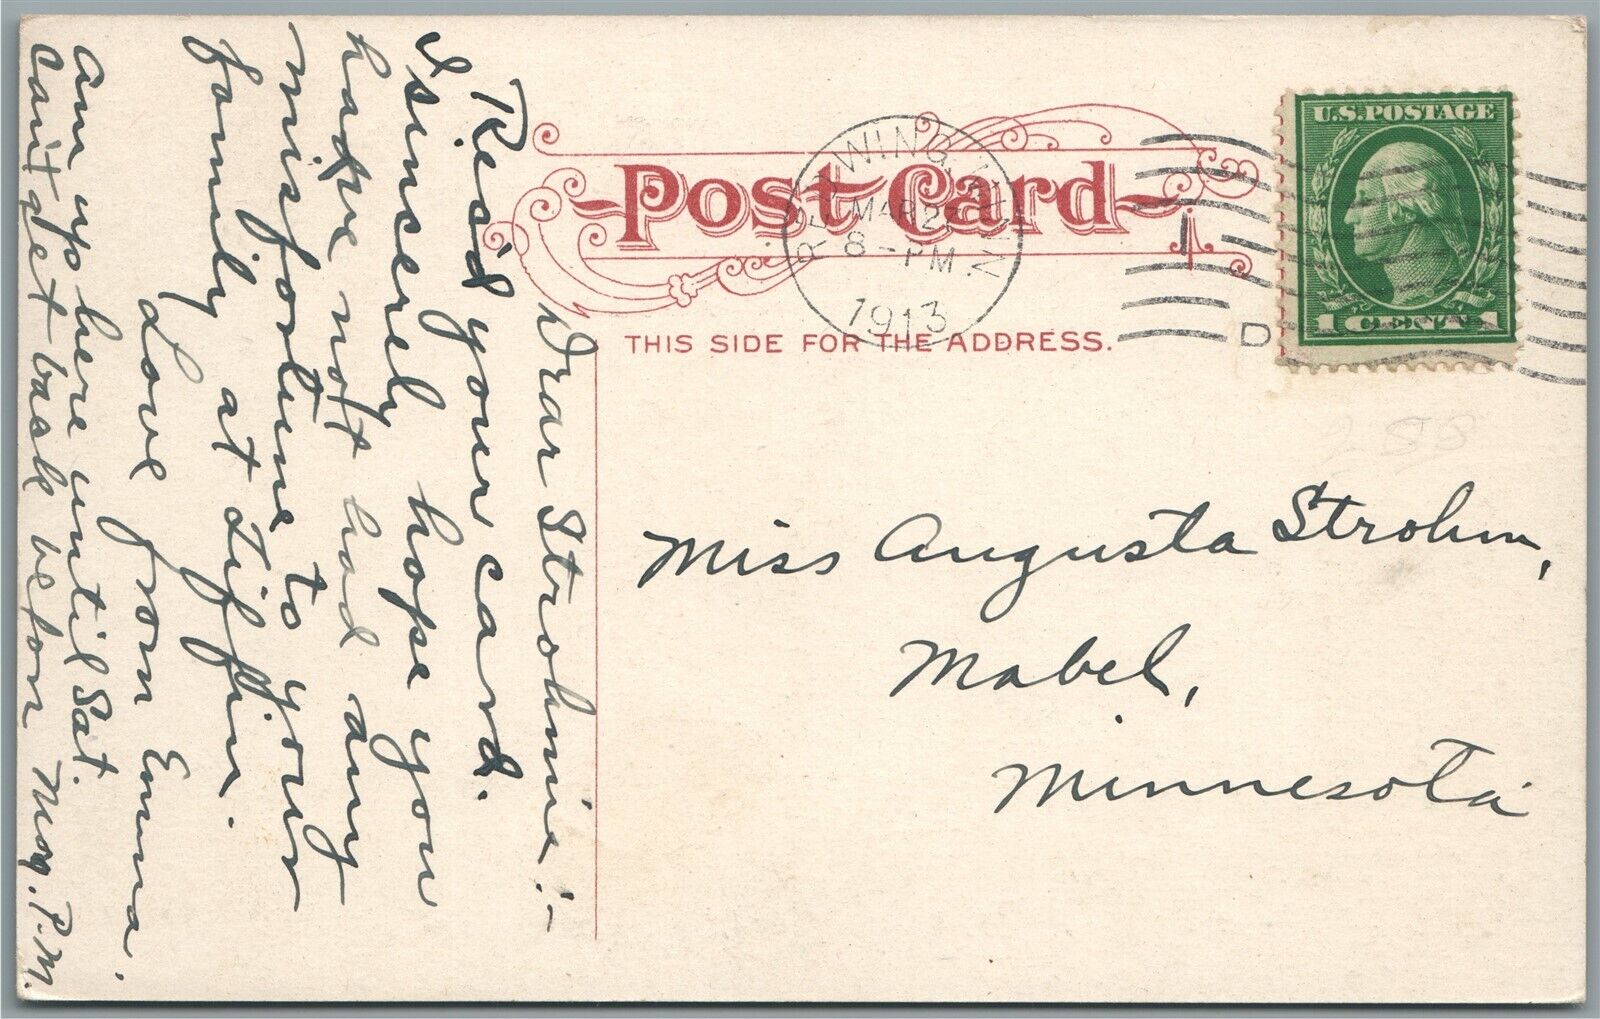 Post Card
THIS SIDE FOR THE ADDRESS.
RED WING MINN
MAR 2
8 - PM
1913
D
U.S. POSTAGE
1 CENT 1
Dear Strohmie:-
Rec'd your card.
I sincerely hope you
have not had any
misfortune to your
family at Tiffin.
Love from Emma.
Am up here until Sat.
Can't get back before Mon. P.M.
Miss Augusta Strohm,
Mabel,
Minnesota